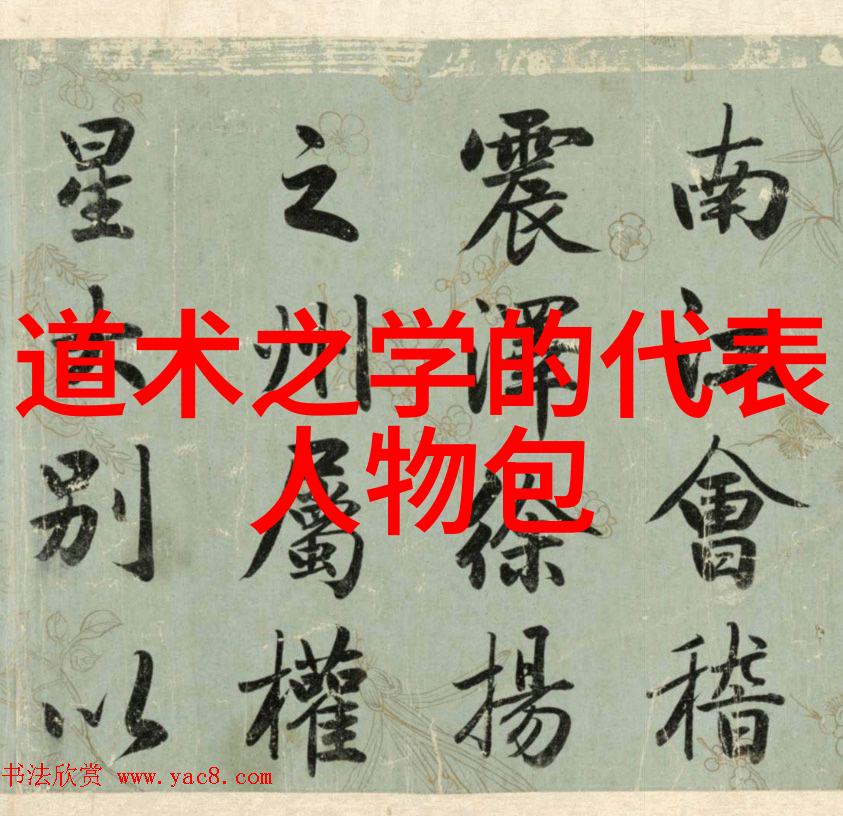 道术之学的代表
人物包
南江會稽
震澤徐揚
之州屬權
星别以
书法欣赏 www.yac8.com